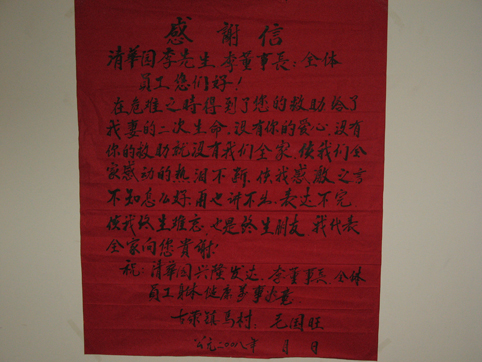 感謝信
清華园李先生 李董事長：全体
員工您们好！
在危难之時得到了您的救助给了
我妻的二次生命，没有你的爱心，没有
你的救助就没有我们全家，使我们全
家感动的热泪不断，使我感激之言
不知怎么好，再也讲不出，表达不完
使我终生难忘，也是终生朋友，我代表
全家向您貴谢
祝：清華园兴隆发达，李董事長，全体
員工身体健康万事如意
马村：毛国旺
公元二00八年 月 日